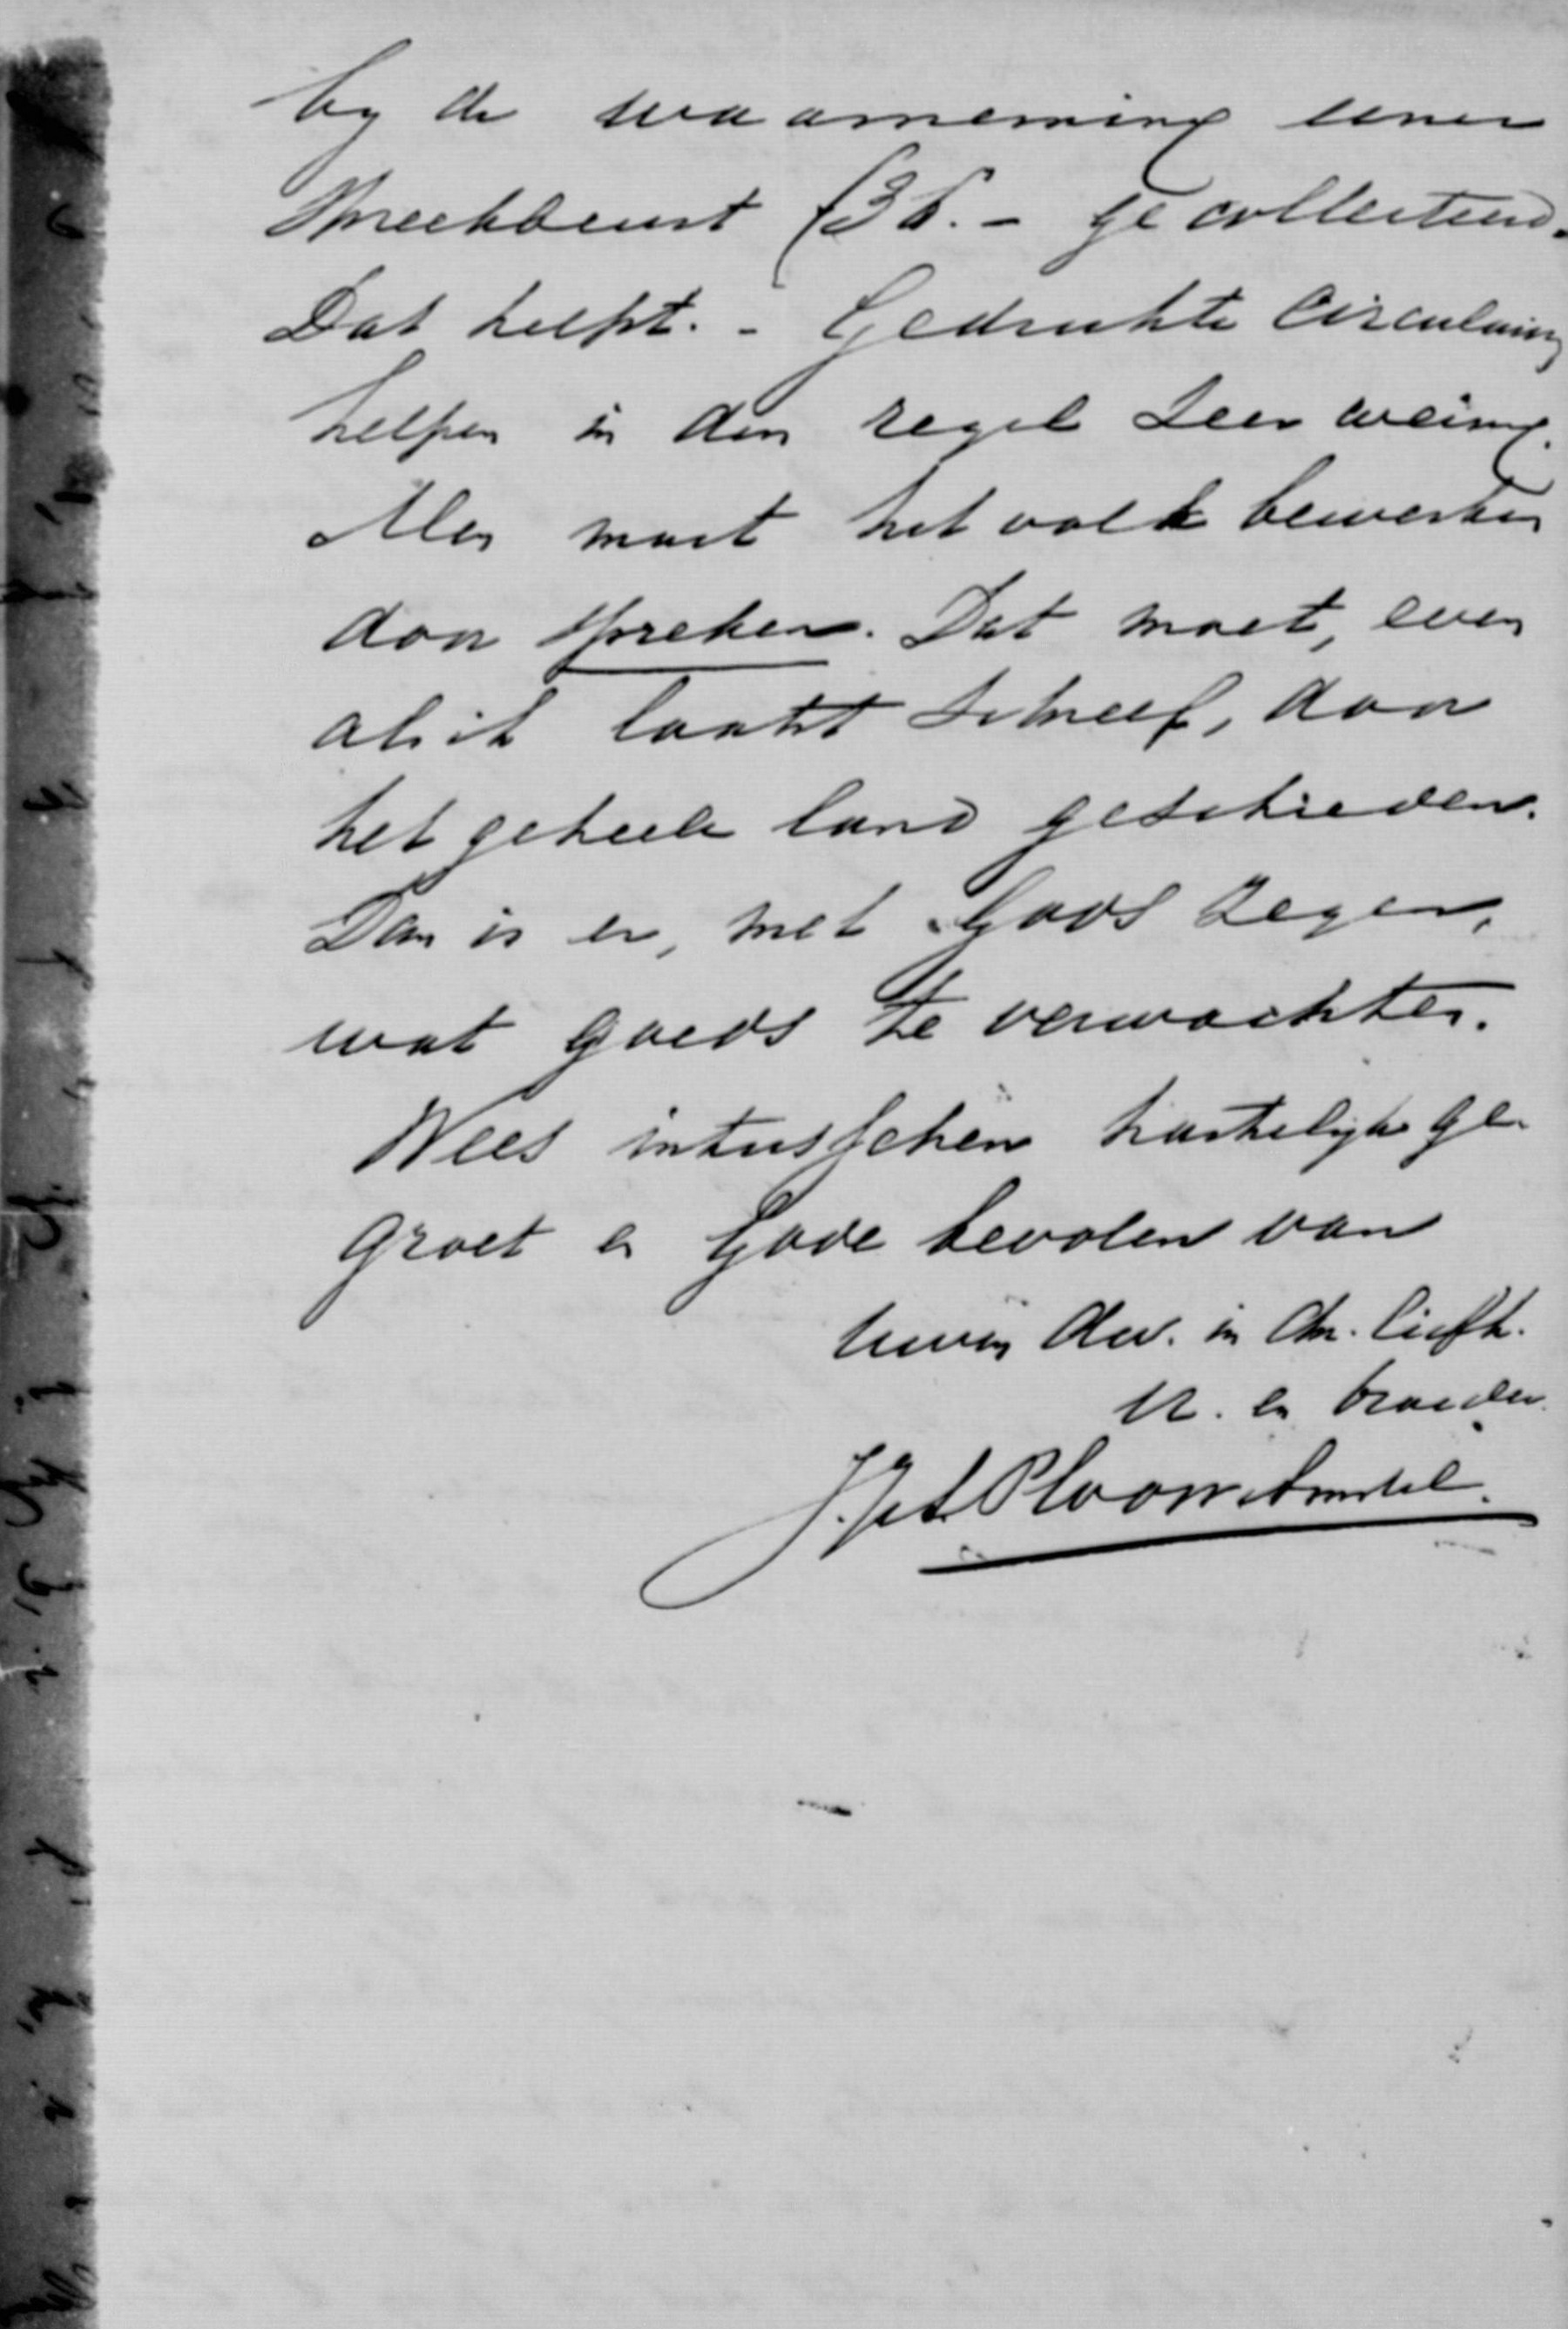 by de waarneming eener
spreekbeurt f 36.- gecollecteerd.
Dat helpt. - Gedrukte circulaires
helpen in den regel zeer weinig.
Men moet het volk bewerken
door spreken. Dat moet, even
als ik laatst schreef, door
het geheele land geschieden.
Dan is er, met Gods zegen,
wat goeds te verwachten.
Wees intusschen hartelijk ge-
groet en Gode bevolen van
Uwen dw. in Chr. liefh.
vr. en broeder
Ploos v. Amstel.